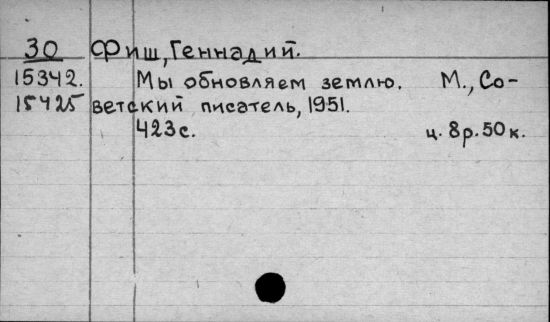 30 Фиш, Геннадий.
15342. Мы обновляем землю. М., Со-
15425 ветский писатель, 1951.
423с. ц. 8р. 50к.